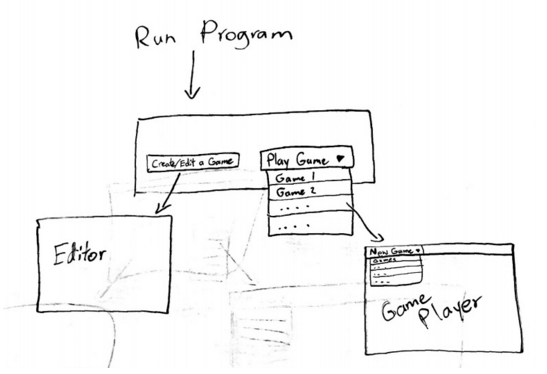 Run Program
Create/Edit a Game
Play Game ▾
Game 1
Game 2
. . . .
. . . .
Editor
New Game ▾
Games
. . .
. . . .
. . . .
Game
Player